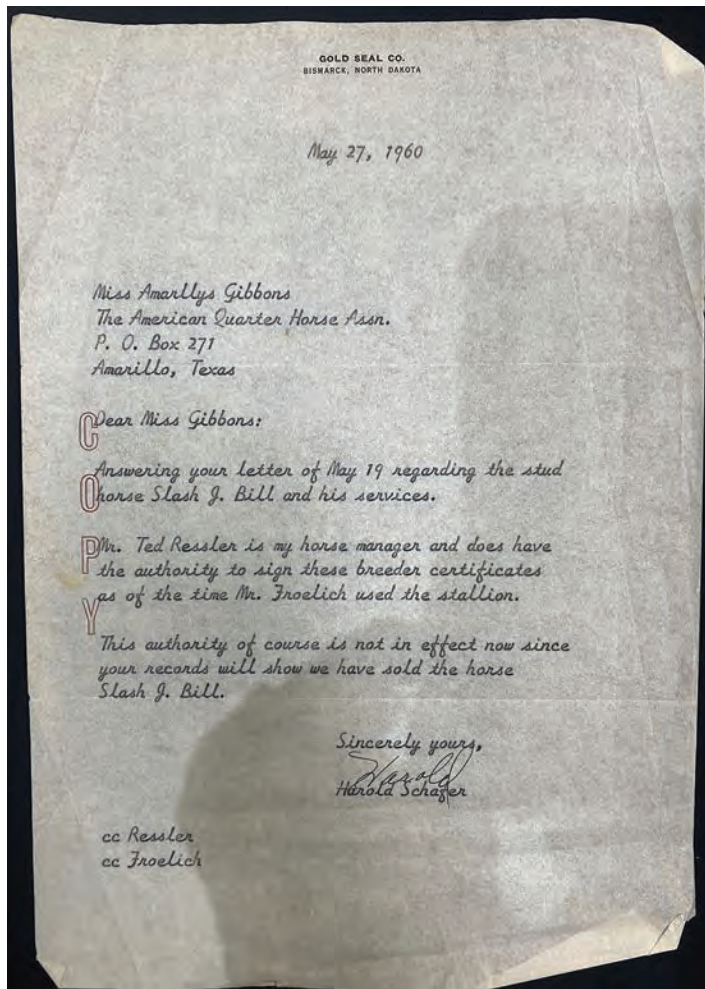 GOLD SEAL CO.
BISMARCK, NORTH DAKOTA
May 27, 1960
Miss Amarllys Gibbons
The American Quarter Horse Assn.
P. O. Box 271
Amarillo, Texas
Dear Miss Gibbons:
Answering your letter of May 19 regarding the stud
horse Slash J. Bill and his services.
Mr. Ted Ressler is my horse manager and does have
the authority to sign these breeder certificates
as of the time Mr. Froelich used the stallion.
This authority of course is not in effect now since
your records will show we have sold the horse
Slash J. Bill.
COPY
Sincerely yours,
Harold
Harold Schafer
cc Ressler
cc Froelich